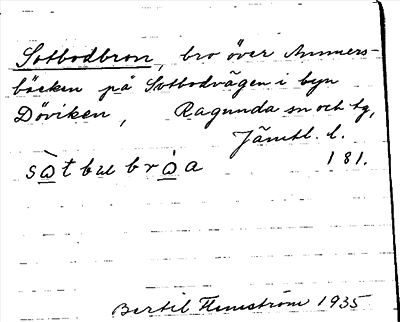 Sotbodbron, bro över Ammers-
bäcken på Sotbodvägen i byn
Döviken, Ragunda sn och tg,
Jämtl. l.
sòtbubròa 181.
Bertil Flemström 1935